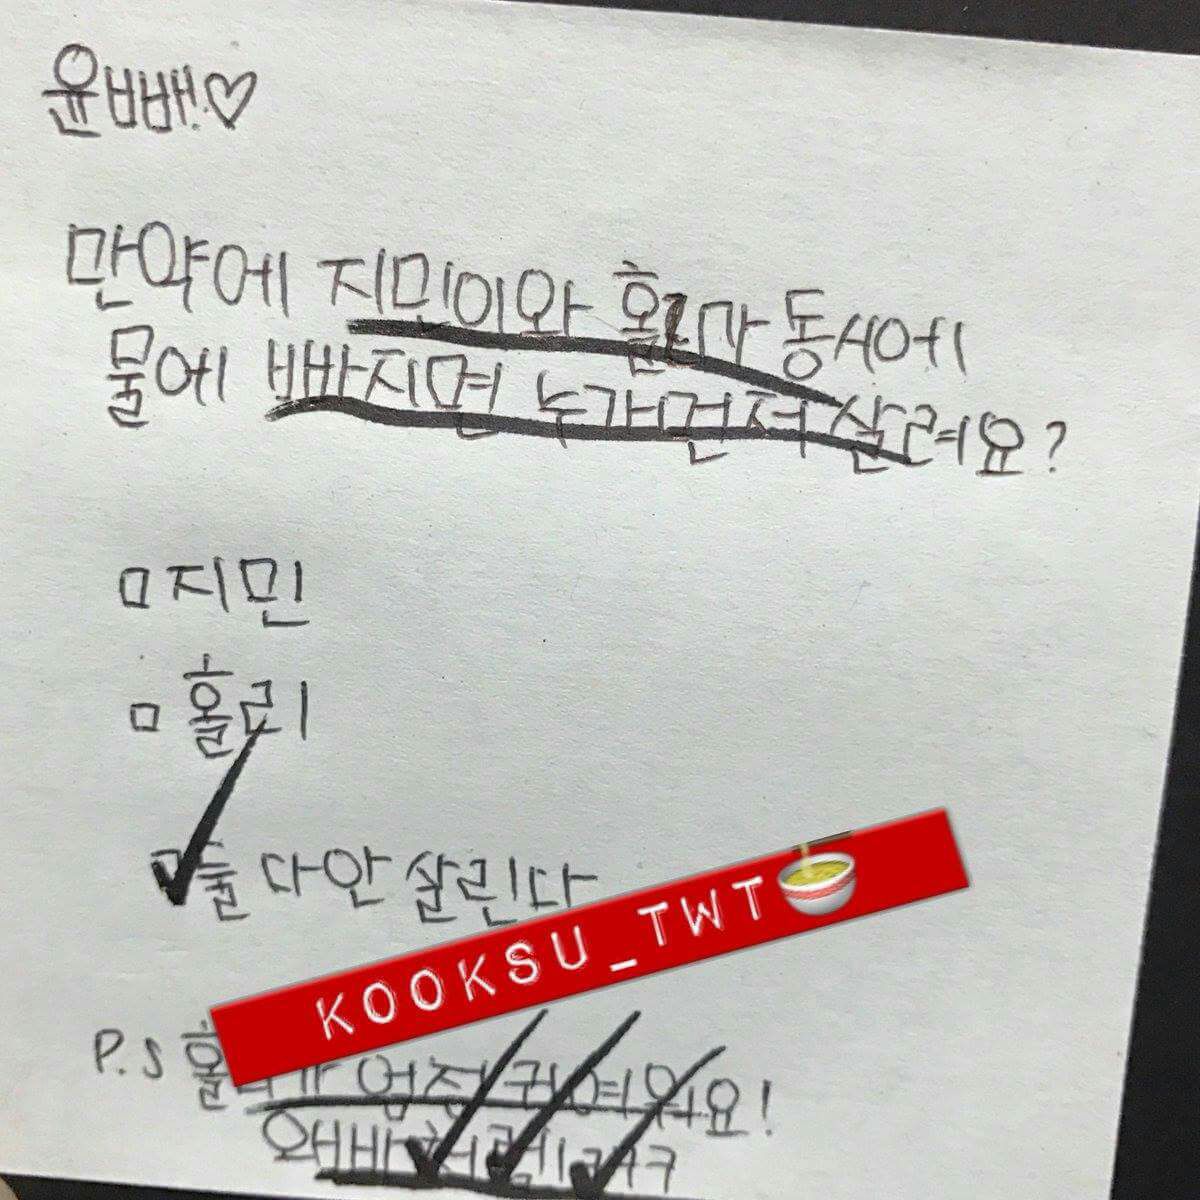 윤빠!♡
만약에 지민이와 홀리가 동시에
물에 빠지면 누가 먼저 살려요?
□ 지민
□ 홀리
둘 다 안 살린다
KOOKSU_TWT
P.S 홀리가 엄청 귀여워요!
오빠처럼ㅋㅋㅋ